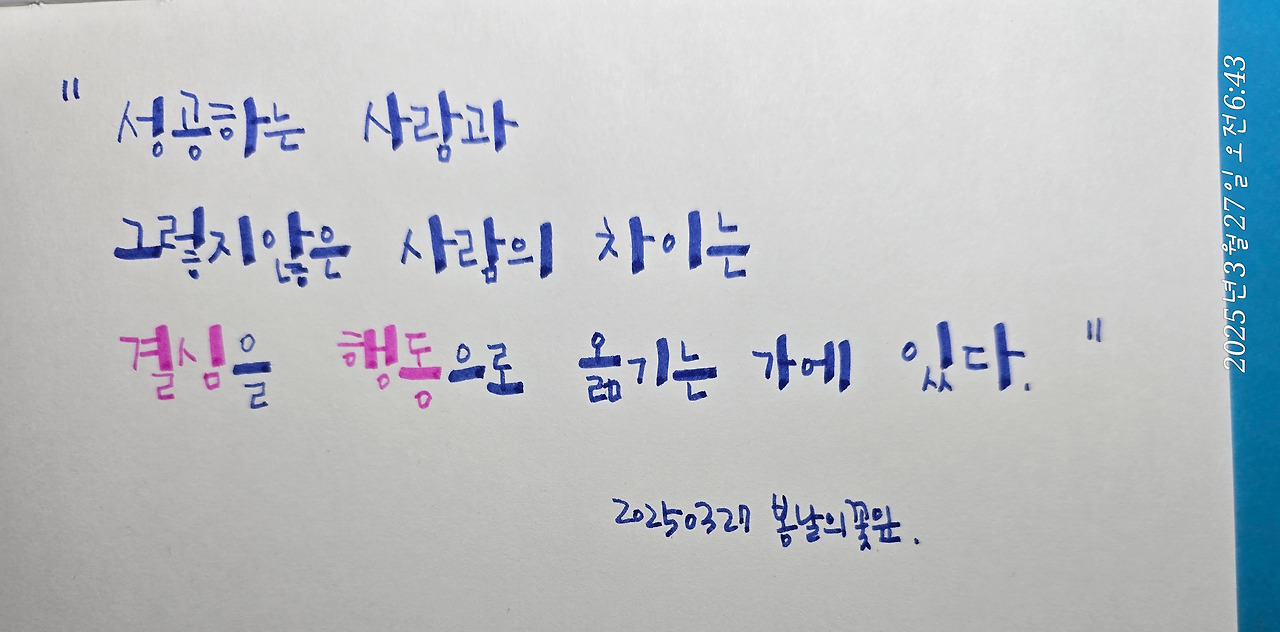 " 성공하는 사람과
그렇지않은 사람의 차이는
결심을 행동으로 옮기는 가에 있다. "
20250327 봄날의꽃잎.
2025년3월27일 오전6:43